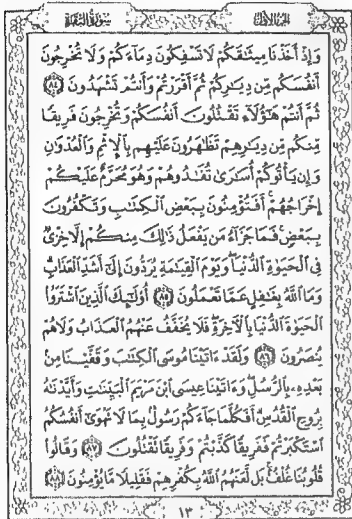 الجزء الأول
سورة البقرة
وَإِذْ أَخَذْنَا مِيثَٰقَكُمْ لَا تَسْفِكُونَ دِمَآءَكُمْ وَلَا تُخْرِجُونَ
أَنفُسَكُم مِّن دِيَٰرِكُمْ ثُمَّ أَقْرَرْتُمْ وَأَنتُمْ تَشْهَدُونَ ﴿٨٤﴾
ثُمَّ أَنتُمْ هَٰٓؤُلَآءِ تَقْتُلُونَ أَنفُسَكُمْ وَتُخْرِجُونَ فَرِيقًا
مِّنكُم مِّن دِيَٰرِهِمْ تَظَٰهَرُونَ عَلَيْهِم بِٱلْإِثْمِ وَٱلْعُدْوَٰنِ
وَإِن يَأْتُوكُمْ أُسَٰرَىٰ تُفَٰدُوهُمْ وَهُوَ مُحَرَّمٌ عَلَيْكُمْ
إِخْرَاجُهُمْ أَفَتُؤْمِنُونَ بِبَعْضِ ٱلْكِتَٰبِ وَتَكْفُرُونَ
بِبَعْضٍ فَمَا جَزَآءُ مَن يَفْعَلُ ذَٰلِكَ مِنكُمْ إِلَّا خِزْىٌ
فِى ٱلْحَيَوٰةِ ٱلدُّنْيَا وَيَوْمَ ٱلْقِيَٰمَةِ يُرَدُّونَ إِلَىٰٓ أَشَدِّ ٱلْعَذَابِ
وَمَا ٱللَّهُ بِغَٰفِلٍ عَمَّا تَعْمَلُونَ ﴿٨٥﴾ أُو۟لَٰٓئِكَ ٱلَّذِينَ ٱشْتَرَوُا۟
ٱلْحَيَوٰةَ ٱلدُّنْيَا بِٱلْءَاخِرَةِ فَلَا يُخَفَّفُ عَنْهُمُ ٱلْعَذَابُ وَلَا هُمْ
يُنصَرُونَ ﴿٨٦﴾ وَلَقَدْ ءَاتَيْنَا مُوسَى ٱلْكِتَٰبَ وَقَفَّيْنَا مِنۢ
بَعْدِهِۦ بِٱلرُّسُلِ وَءَاتَيْنَا عِيسَى ٱبْنَ مَرْيَمَ ٱلْبَيِّنَٰتِ وَأَيَّدْنَٰهُ
بِرُوحِ ٱلْقُدُسِ أَفَكُلَّمَا جَآءَكُمْ رَسُولٌۢ بِمَا لَا تَهْوَىٰٓ أَنفُسُكُمُ
ٱسْتَكْبَرْتُمْ فَفَرِيقًا كَذَّبْتُمْ وَفَرِيقًا تَقْتُلُونَ ﴿٨٧﴾ وَقَالُوا۟
قُلُوبُنَا غُلْفٌۢ بَل لَّعَنَهُمُ ٱللَّهُ بِكُفْرِهِمْ فَقَلِيلًا مَّا يُؤْمِنُونَ ﴿٨٨﴾
١٣